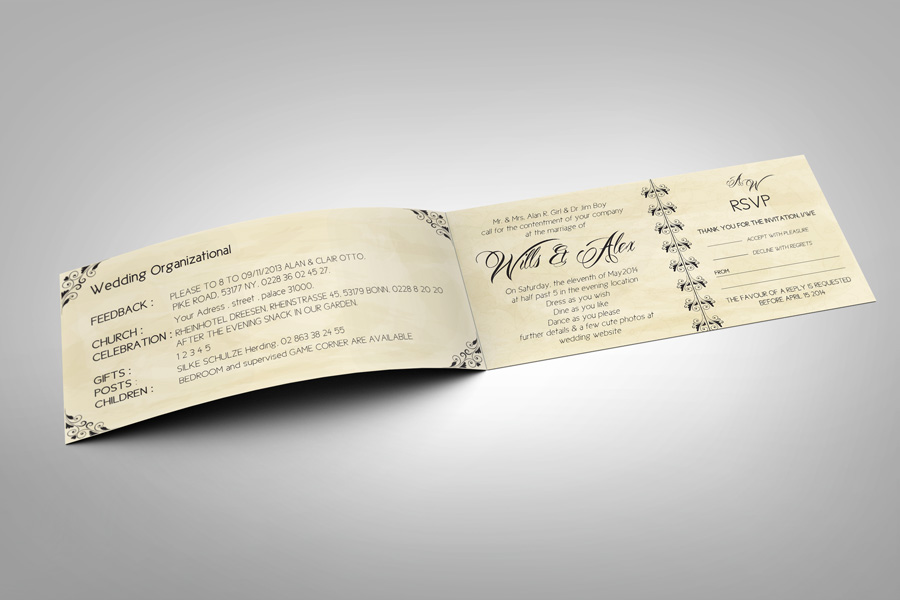 Wedding Organizational
FEEDBACK : PLEASE TO 8 TO 09/11/2013 ALAN & CLAIR OTTO.
PIKE ROAD. 53177 NY. 0228 36 02 45 27.
CHURCH : Your Adress . street . palace 31000.
CELEBRATION : RHEINHOTEL DREESEN. RHEINSTRASSE 45, 53179 BONN. 0228 8 20 20
AFTER THE EVENING SNACK IN OUR GARDEN.
GIFTS : 1 2 3 4 5
POSTS : SILKE SCHULZE Herding. 02 863 38 24 55
CHILDREN : BEDROOM and supervised GAME CORNER ARE AVAILABLE
Mr. & Mrs. Alan R. Girl & Dr Jim Boy
call for the contentment of your company
at the marriage of
Wills & Alex
On Saturday, the eleventh of May2014
at half past 5 in the evening location
Dress as you wish
Dine as you like
Dance as you please
further details & a few cute photos at
wedding website
A & W
RSVP
THANK YOU FOR THE INVITATION, I/WE
ACCEPT WITH PLEASURE
DECLINE WITH REGRETS
FROM
THE FAVOUR OF A REPLY IS REQUESTED
BEFORE, APRIL 15 2014